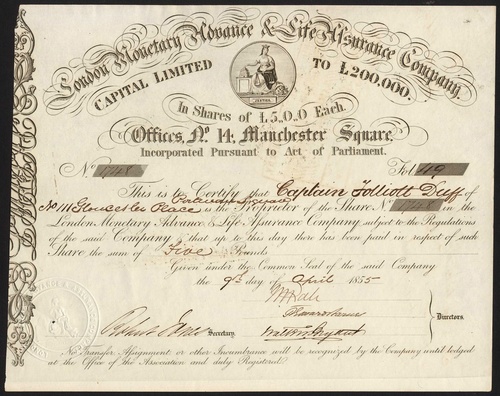 London Monetary Advance & Life Assurance Company,
CAPITAL LIMITED TO £200,000.
In Shares of £5,,0,,0 Each.
Offices, No. 14, Manchester Square.
Incorporated Pursuant to Act of Parliament.
No. 1748 Fol. 419
This is to Certify that Captain Folliott Duff of
Portman Square
No 111 Gloucester Place is the Proprietor of the Share No. 1748 in the
London Monetary Advance & Life Assurance Company subject to the Regulations
of the said Company & that up to this day there has been paid in respect of such
Share the sum of Five Pounds.
Given under the Common Seal of the said Company
the 9th day of April 1855
Secretary.
Directors.
No Transfer, Assignment or other Incumbrance will be recognized by the Company until lodged
at the Office of the Association and duly Registered.